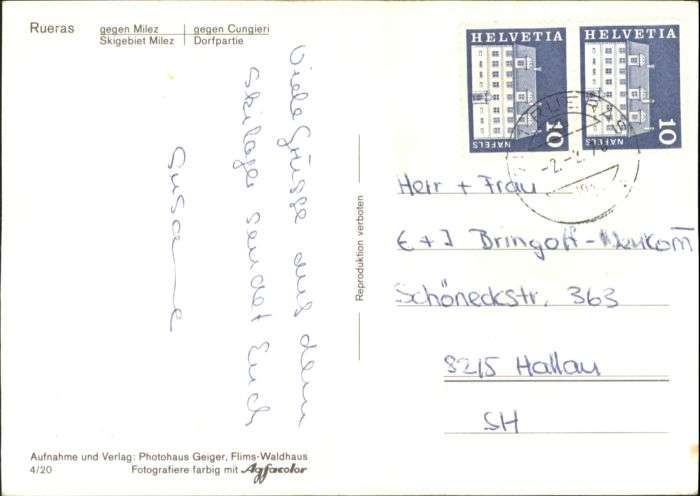 Rueras
gegen Milez | gegen Cungieri
Skigebiet Milez | Dorfpartie
Viele Grüsse aus dem
Skilager sendet Euch
Susanne
Reproduktion verboten
HELVETIA
NÄFELS
10
HELVETIA
NÄFELS
10
Herr + Frau
E + J Bringolf-Neukom
Schöneckstr. 363
8215 Hallau
SH
Aufnahme und Verlag: Photohaus Geiger, Flims-Waldhaus
4/20 Fotografiere farbig mit Agfacolor